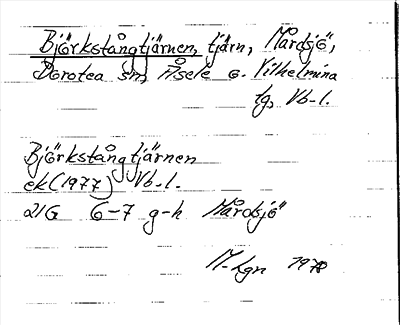 Björkstångtjärnen, tjärn, Mårdsjö,
Dorotea sn, Åsele o. Vilhelmina
tg, Vb-l.
Björkstångtjärnen
ek (1977) Vb-l.
21G 6-7 g-h Mårdsjö
M-hgn 1978